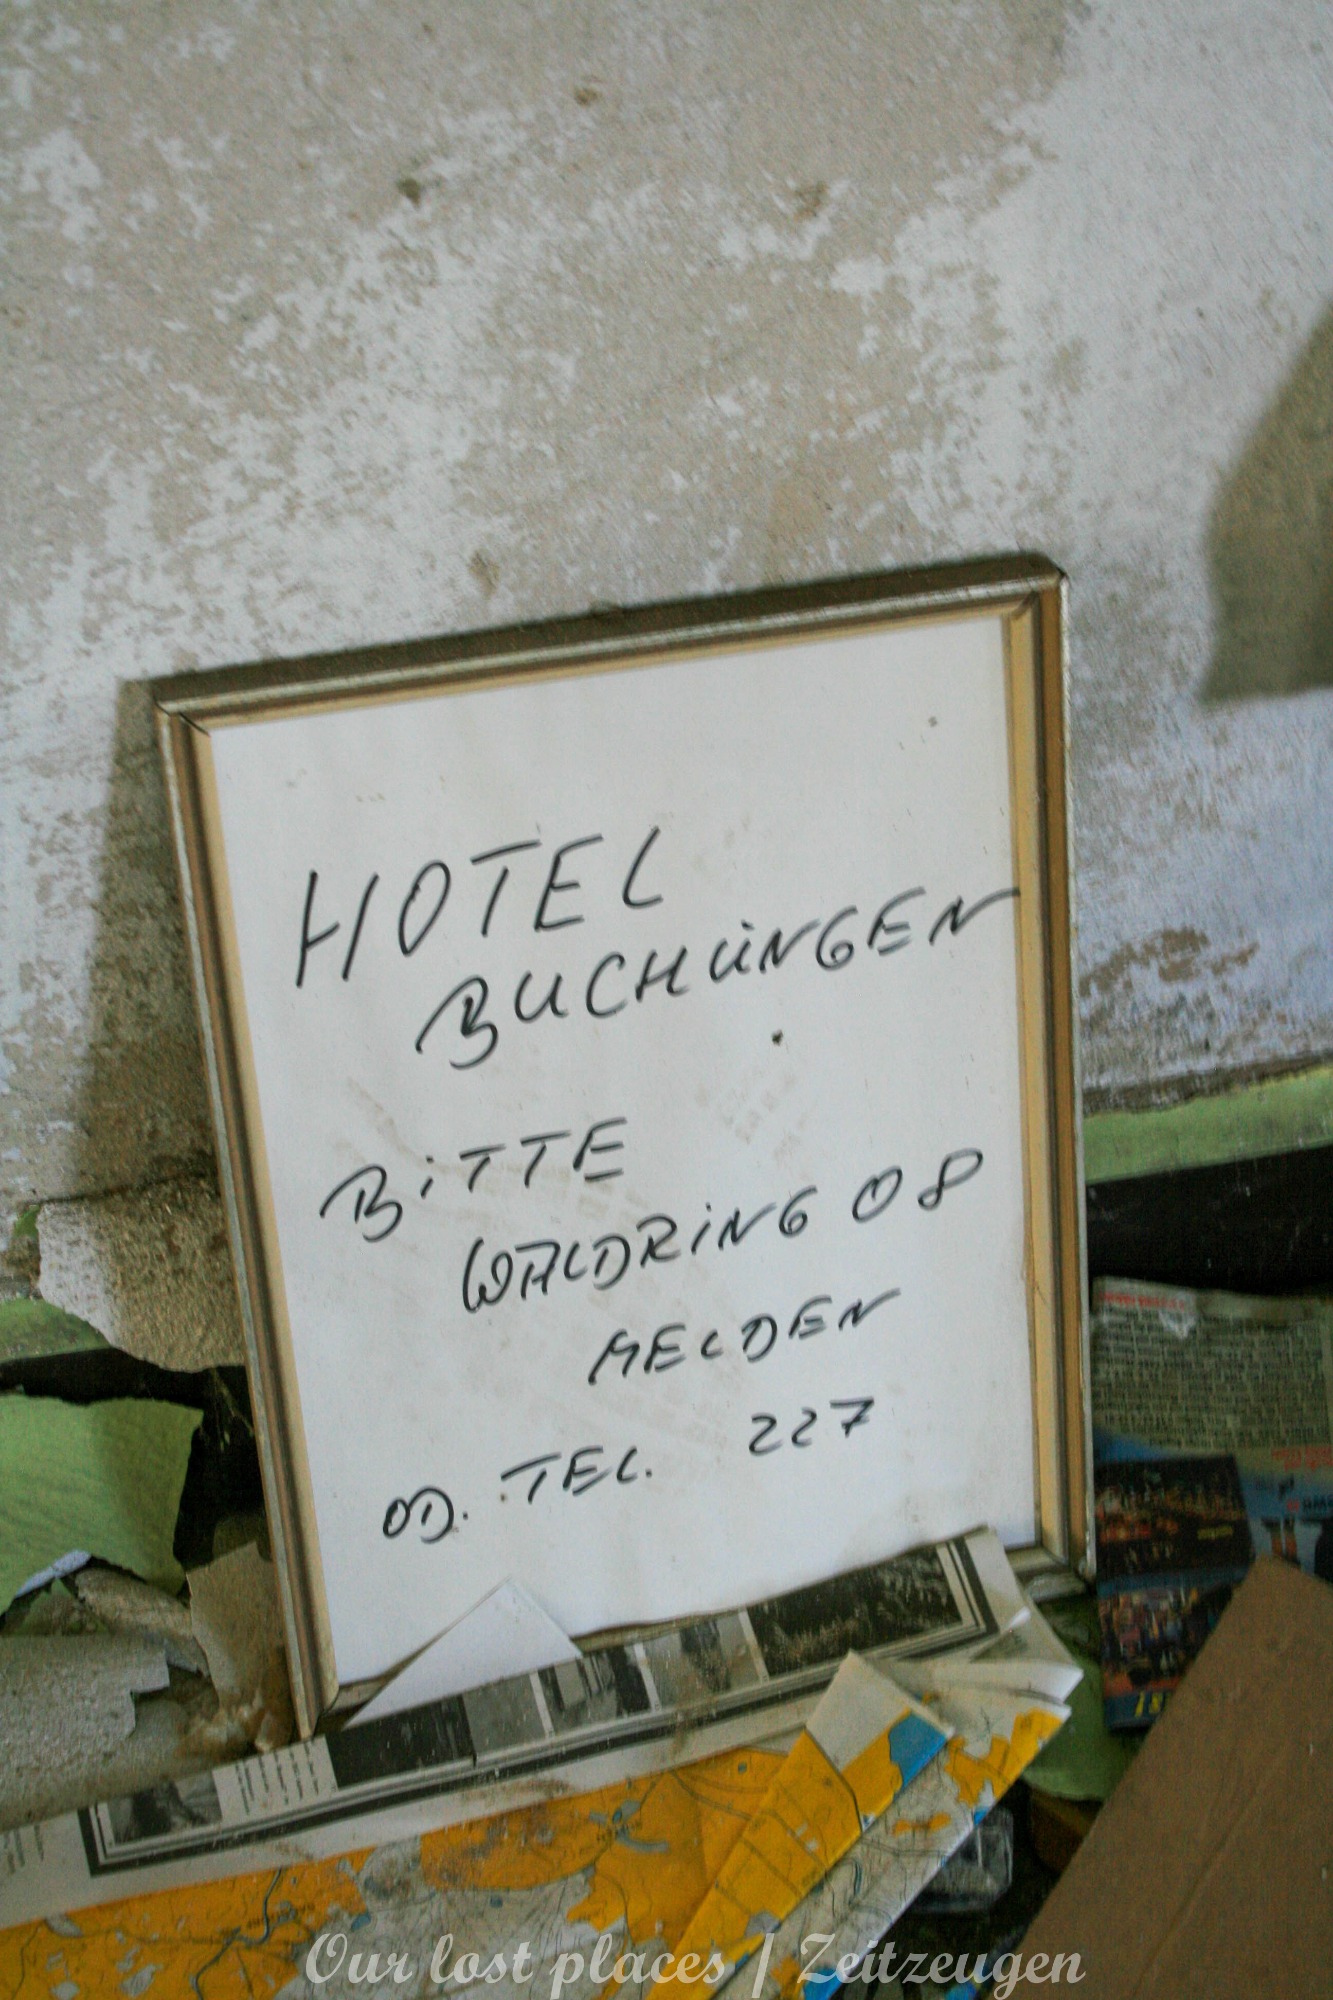 HOTEL
BUCHUNGEN
BITTE
WALDRING 08
MELDEN
OD. TEL. 227
Our lost places | Zeitzeugen